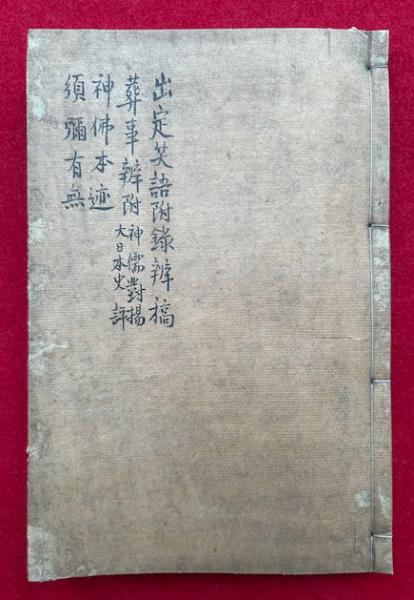 出定笑語附録辨稿
葬事辨附神儒對揚
大日本史評
神佛本迹
須彌有無